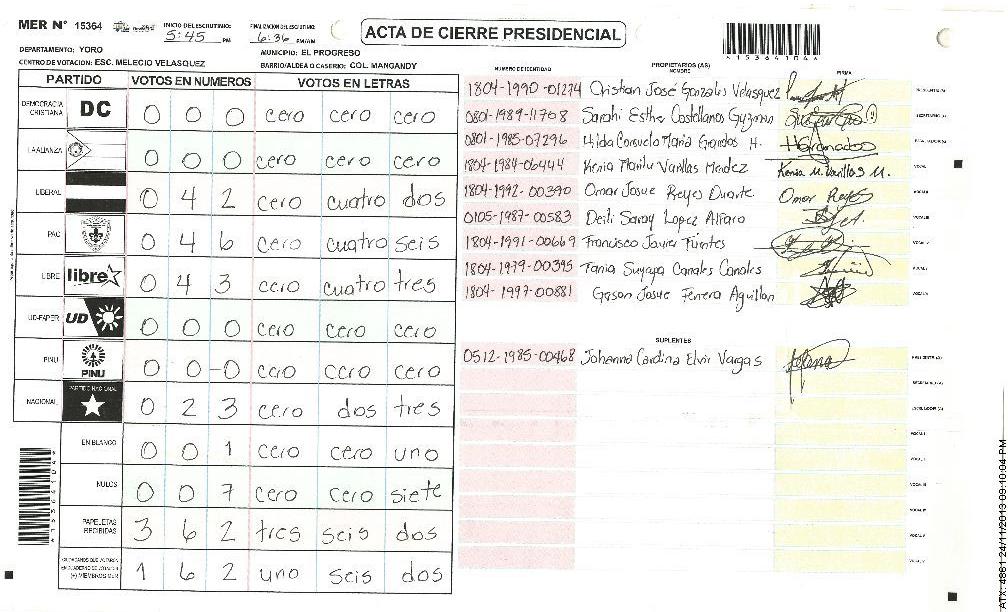 MER N° 15364 INICIO DEL ESCRUTINIO: 5:45 PM FINALIZACION DEL ESCRUTINIO: 6:36 PM/AM
ACTA DE CIERRE PRESIDENCIAL
A15364104
DEPARTAMENTO: YORO MUNICIPIO: EL PROGRESO
CENTRO DE VOTACION: ESC. MELECIO VELASQUEZ BARRIO/ALDEA O CASERIO: COL. MANGANDY
PARTIDO VOTOS EN NUMEROS VOTOS EN LETRAS
DEMOCRACIA CRISTIANA DC 0 0 0 cero cero cero
LA ALIANZA 0 0 0 cero cero cero
LIBERAL 0 4 2 cero cuatro dos
PAC 0 4 6 cero cuatro seis
LIBRE libre 0 4 3 cero cuatro tres
UD-FAPER UD 0 0 0 cero cero cero
PINU PINU 0 0 0 cero cero cero
NACIONAL PARTIDO NACIONAL 0 2 3 cero dos tres
EN BLANCO 0 0 1 cero cero uno
NULOS 0 0 7 cero cero siete
PAPELETAS RECIBIDAS 3 6 2 tres seis dos
CIUDADANOS QUE VOTARON EN CUADERNO DE VOTACION (+) MIEMBROS MER 1 6 2 uno seis dos
NUMERO DE IDENTIDAD PROPIETARIOS (AS) NOMBRE FIRMA
1804-1990-01274 Cristian José Gonzales Velasquez PRESIDENTE (A)
0801-1989-11708 Sarahi Esther Castellanos Guzman SECRETARIO (A)
0801-1985-07296 Hilda Consuelo Maria Granados H. HGranados ESCRUTADOR (A)
1804-1984-06444 Kenia Marilu Varillas Mendez Kenia M. Varillas M. VOCAL I
1804-1992-00390 Omar Josue Reyes Duarte Omar Reyes VOCAL II
0105-1987-00583 Deili Saray Lopez Alfaro VOCAL III
1804-1991-00669 Francisco Javier Fuentes VOCAL IV
1804-1979-00395 Tania Suyapa Canales Canales VOCAL V
1804-1997-00881 Gerson Josue Ferrera Aguillon VOCAL VI
SUPLENTES
0512-1985-00468 Johanna Carolina Elvir Vargas PRESIDENTE (A)
SECRETARIO (A)
ESCRUTADOR (A)
VOCAL I
VOCAL II
VOCAL III
VOCAL IV
VOCAL V
VOCAL VI
A15364104
ATX: 4861 24/11/2013 09:10:04 PM